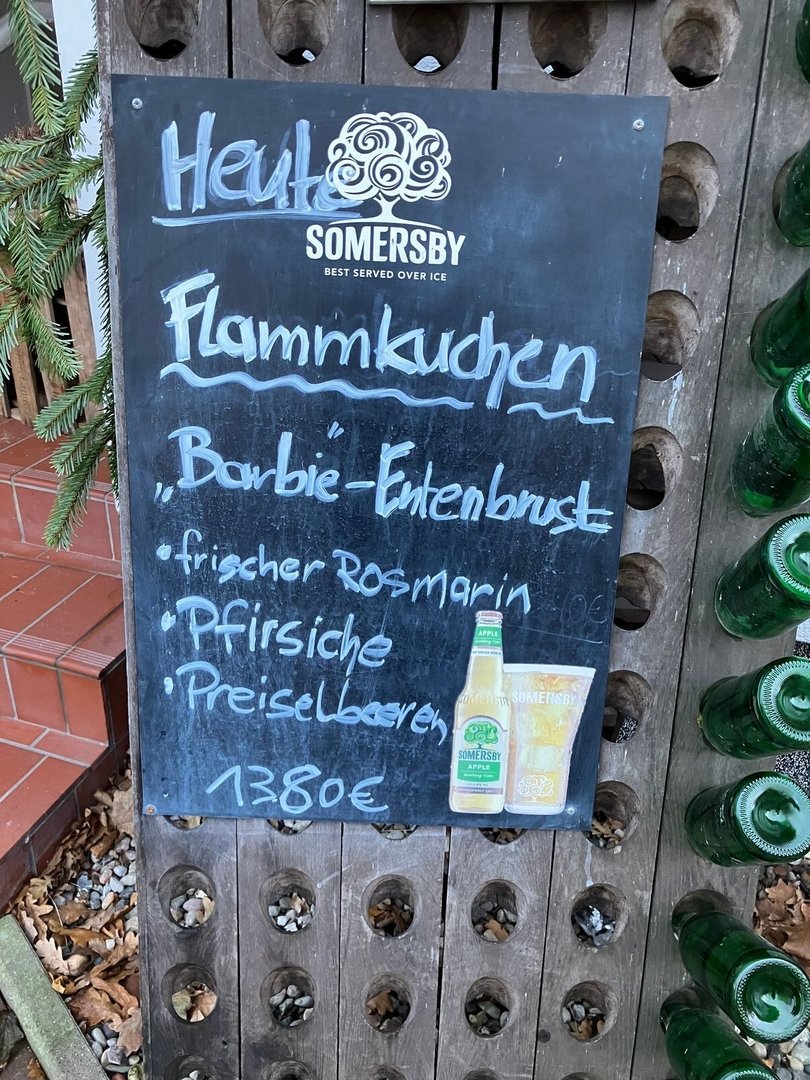 Heute
SOMERSBY
BEST SERVED OVER ICE
Flammkuchen
„Barbie"-Entenbrust
• frischer Rosmarin
• Pfirsiche
• Preiselbeeren
1380€
APPLE
SOMERSBY
SOMERSBY
APPLE